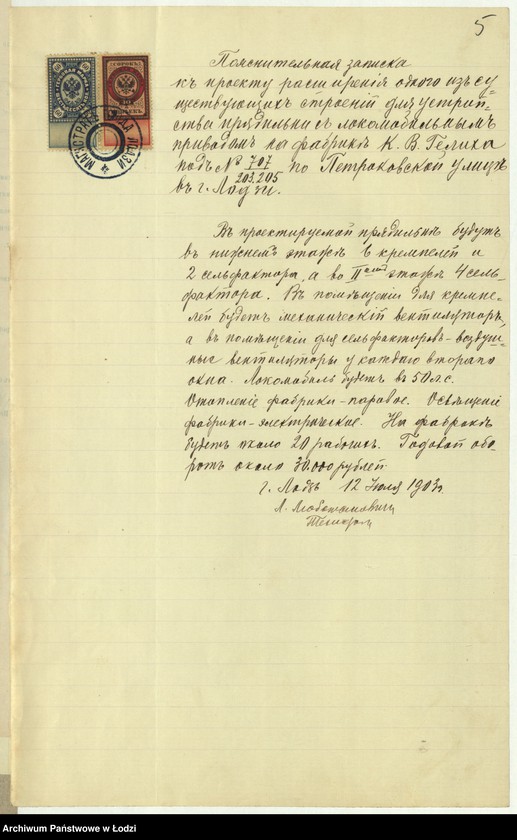 5
МАГИСТРАТЪ Г. ЛОДЗИ
Пояснительная записка
къ проекту расширенія одного изъ су-
ществующихъ строеній для устрой-
ства прядильни съ локомобильнымъ
приводомъ на фабрикѣ К. В. Гелиха
подъ № 707 / 203.205 по Петроковской улицѣ
въ г. Лодзи.
Въ проектируемой прядильнѣ будутъ
въ нижнемъ этажѣ 6 кремпелей и
2 сельфактора, а во II этажѣ 4 сель-
фактора. Въ помѣщеніи для кремпе-
лей будетъ механическій вентиляторъ,
а въ помѣщеніи для сельфакторовъ - воздуш-
ные вентиляторы у каждаго второго
окна. Локомобиль будетъ въ 50 л. с.
Отопленіе фабрики - паровое. Освѣщеніе
фабрики - электрическое. На фабрикѣ
будетъ около 20 рабочихъ. Годовой обо-
ротъ около 30.000 рублей
г. Лодзь 12 Іюля 1903 г.
Archiwum Państwowe w Łodzi